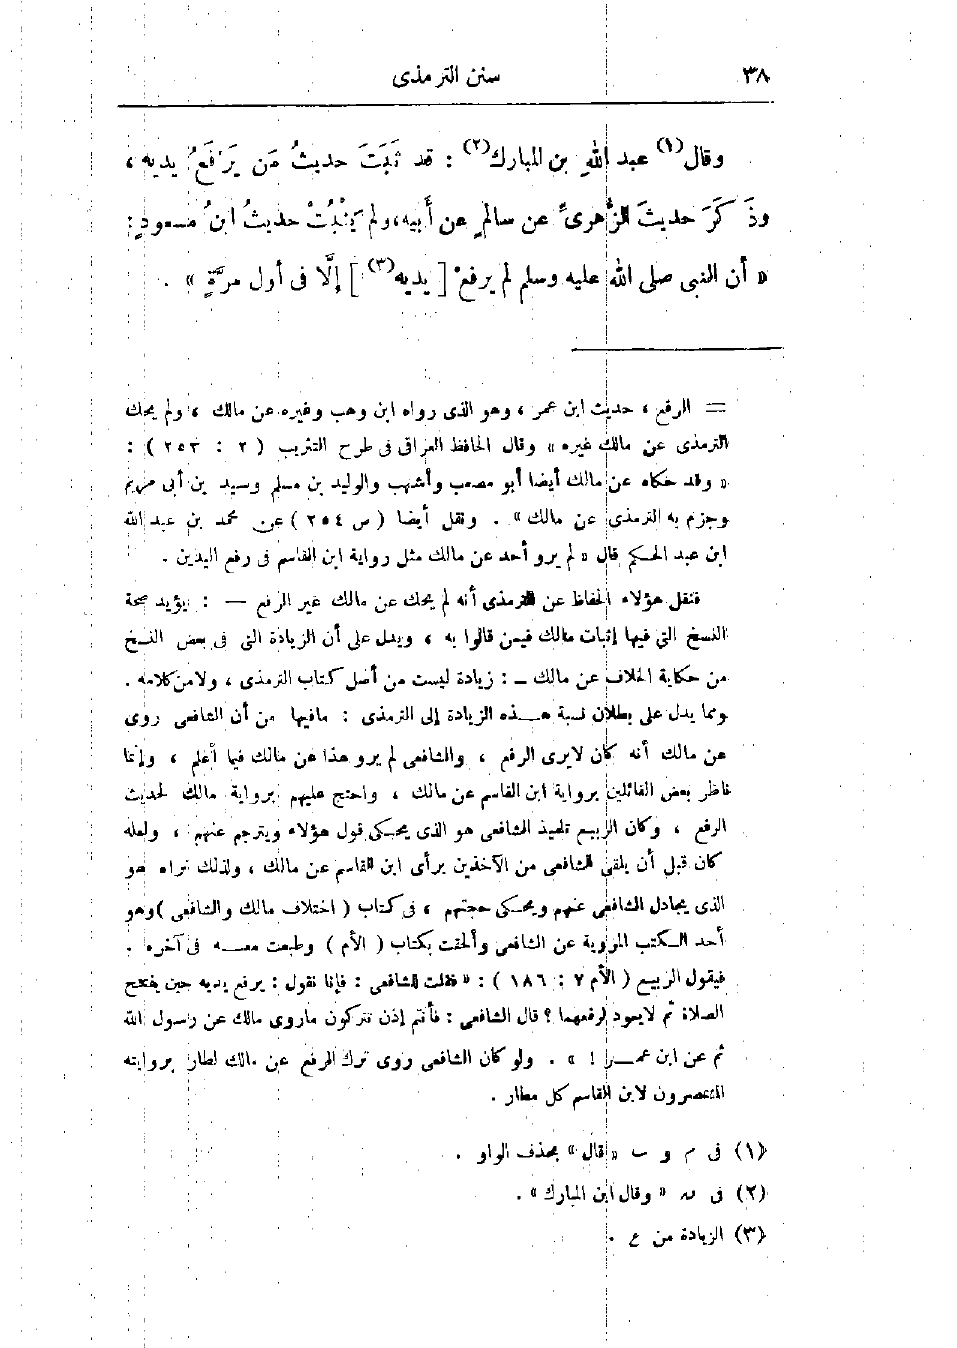 ٣٨
سنن الترمذى
وقال(١) عبد اللهِ بن المبارك(٢) : قد ثَبَتَ حديثُ مَن يَرْفَعُ يديه ،
وذَ كَرَ حديثَ الزُّهرىِّ عن سالمٍ عن أَبيه، ولم يَثْبُتْ حديثُ ابنُ مسعودٍ :
« أن النبى صلى الله عليه وسلم لم يرفعْ [ يديه(٣) ] إلَّا فى أول مرَّةٍ » .
= الرفع ، حديث ابن عمر ، وهو الذى رواه ابن وهب وغيره عن مالك ، ولم يحك
الترمذى عن مالك غيره » وقال الحافظ العراقى فى طرح التثريب ( ٢ : ٢٥٣ ) :
« وقد حكاه عن مالك أيضا أبو مصعب وأشهب والوليد بن مسلم وسعيد بن أبى مريم
وجزم به الترمذى عن مالك » . ونقل أيضا ( ص ٢٥٤ ) عن محمد بن عبد الله
ابن عبد الحكم قال « لم يرو أحد عن مالك مثل رواية ابن القاسم فى رفع اليدين .
فنقل هؤلاء الحفاظ عن الترمذى أنه لم يحك عن مالك غير الرفع — : يؤيد صحة
النسخ التى فيها إثبات مالك فيمن قالوا به ، ويدل على أن الزيادة التى فى بعض النسخ
من حكاية الخلاف عن مالك ــ : زيادة ليست من أصل كتاب الترمذى ، ولا من كلامه .
ومما يدل على بطلان نسبة هذه الزيادة إلى الترمذى : مافيها من أن الشافعى روى
عن مالك أنه كان لايرى الرفع ، والشافعى لم يرو هذا عن مالك فيما أعلم ، وإنما
ناظر بعض القائلين برواية ابن القاسم عن مالك ، واحتج عليهم برواية مالك لحديث
الرفع ، وكان الربيع تلميذ الشافعى هو الذى يحكى قول هؤلاء ويترجم عنهم ، ولعله
كان قبل أن يلقى الشافعى من الآخذين برأى ابن القاسم عن مالك ، ولذلك تراه هو
الذى يجادل الشافعى عنهم ويحكى حجتهم ، فى كتاب ( اختلاف مالك والشافعى ) وهو
أحد الكتب المروية عن الشافعى وألحقت بكتاب ( الأم ) وطبعت معه فى آخره .
فيقول الربيع ( الأم ٧ : ١٨٦ ) : « فقلت للشافعى : فإنا نقول : يرفع يديه حين يفتتح
الصلاة ثم لايعود لرفعهما ؟ قال الشافعى : فأنتم إذن تتركون ماروى مالك عن رسول الله
ثم عن ابن عمر ! » . ولو كان الشافعى روى ترك الرفع عن مالك لطار بروايته
المنتصرون لابن القاسم كل مطار .
(١) فى م و ب « قال » بحذف الواو .
(٢) فى « وقال ابن المبارك » .
(٣) الزيادة من ع .